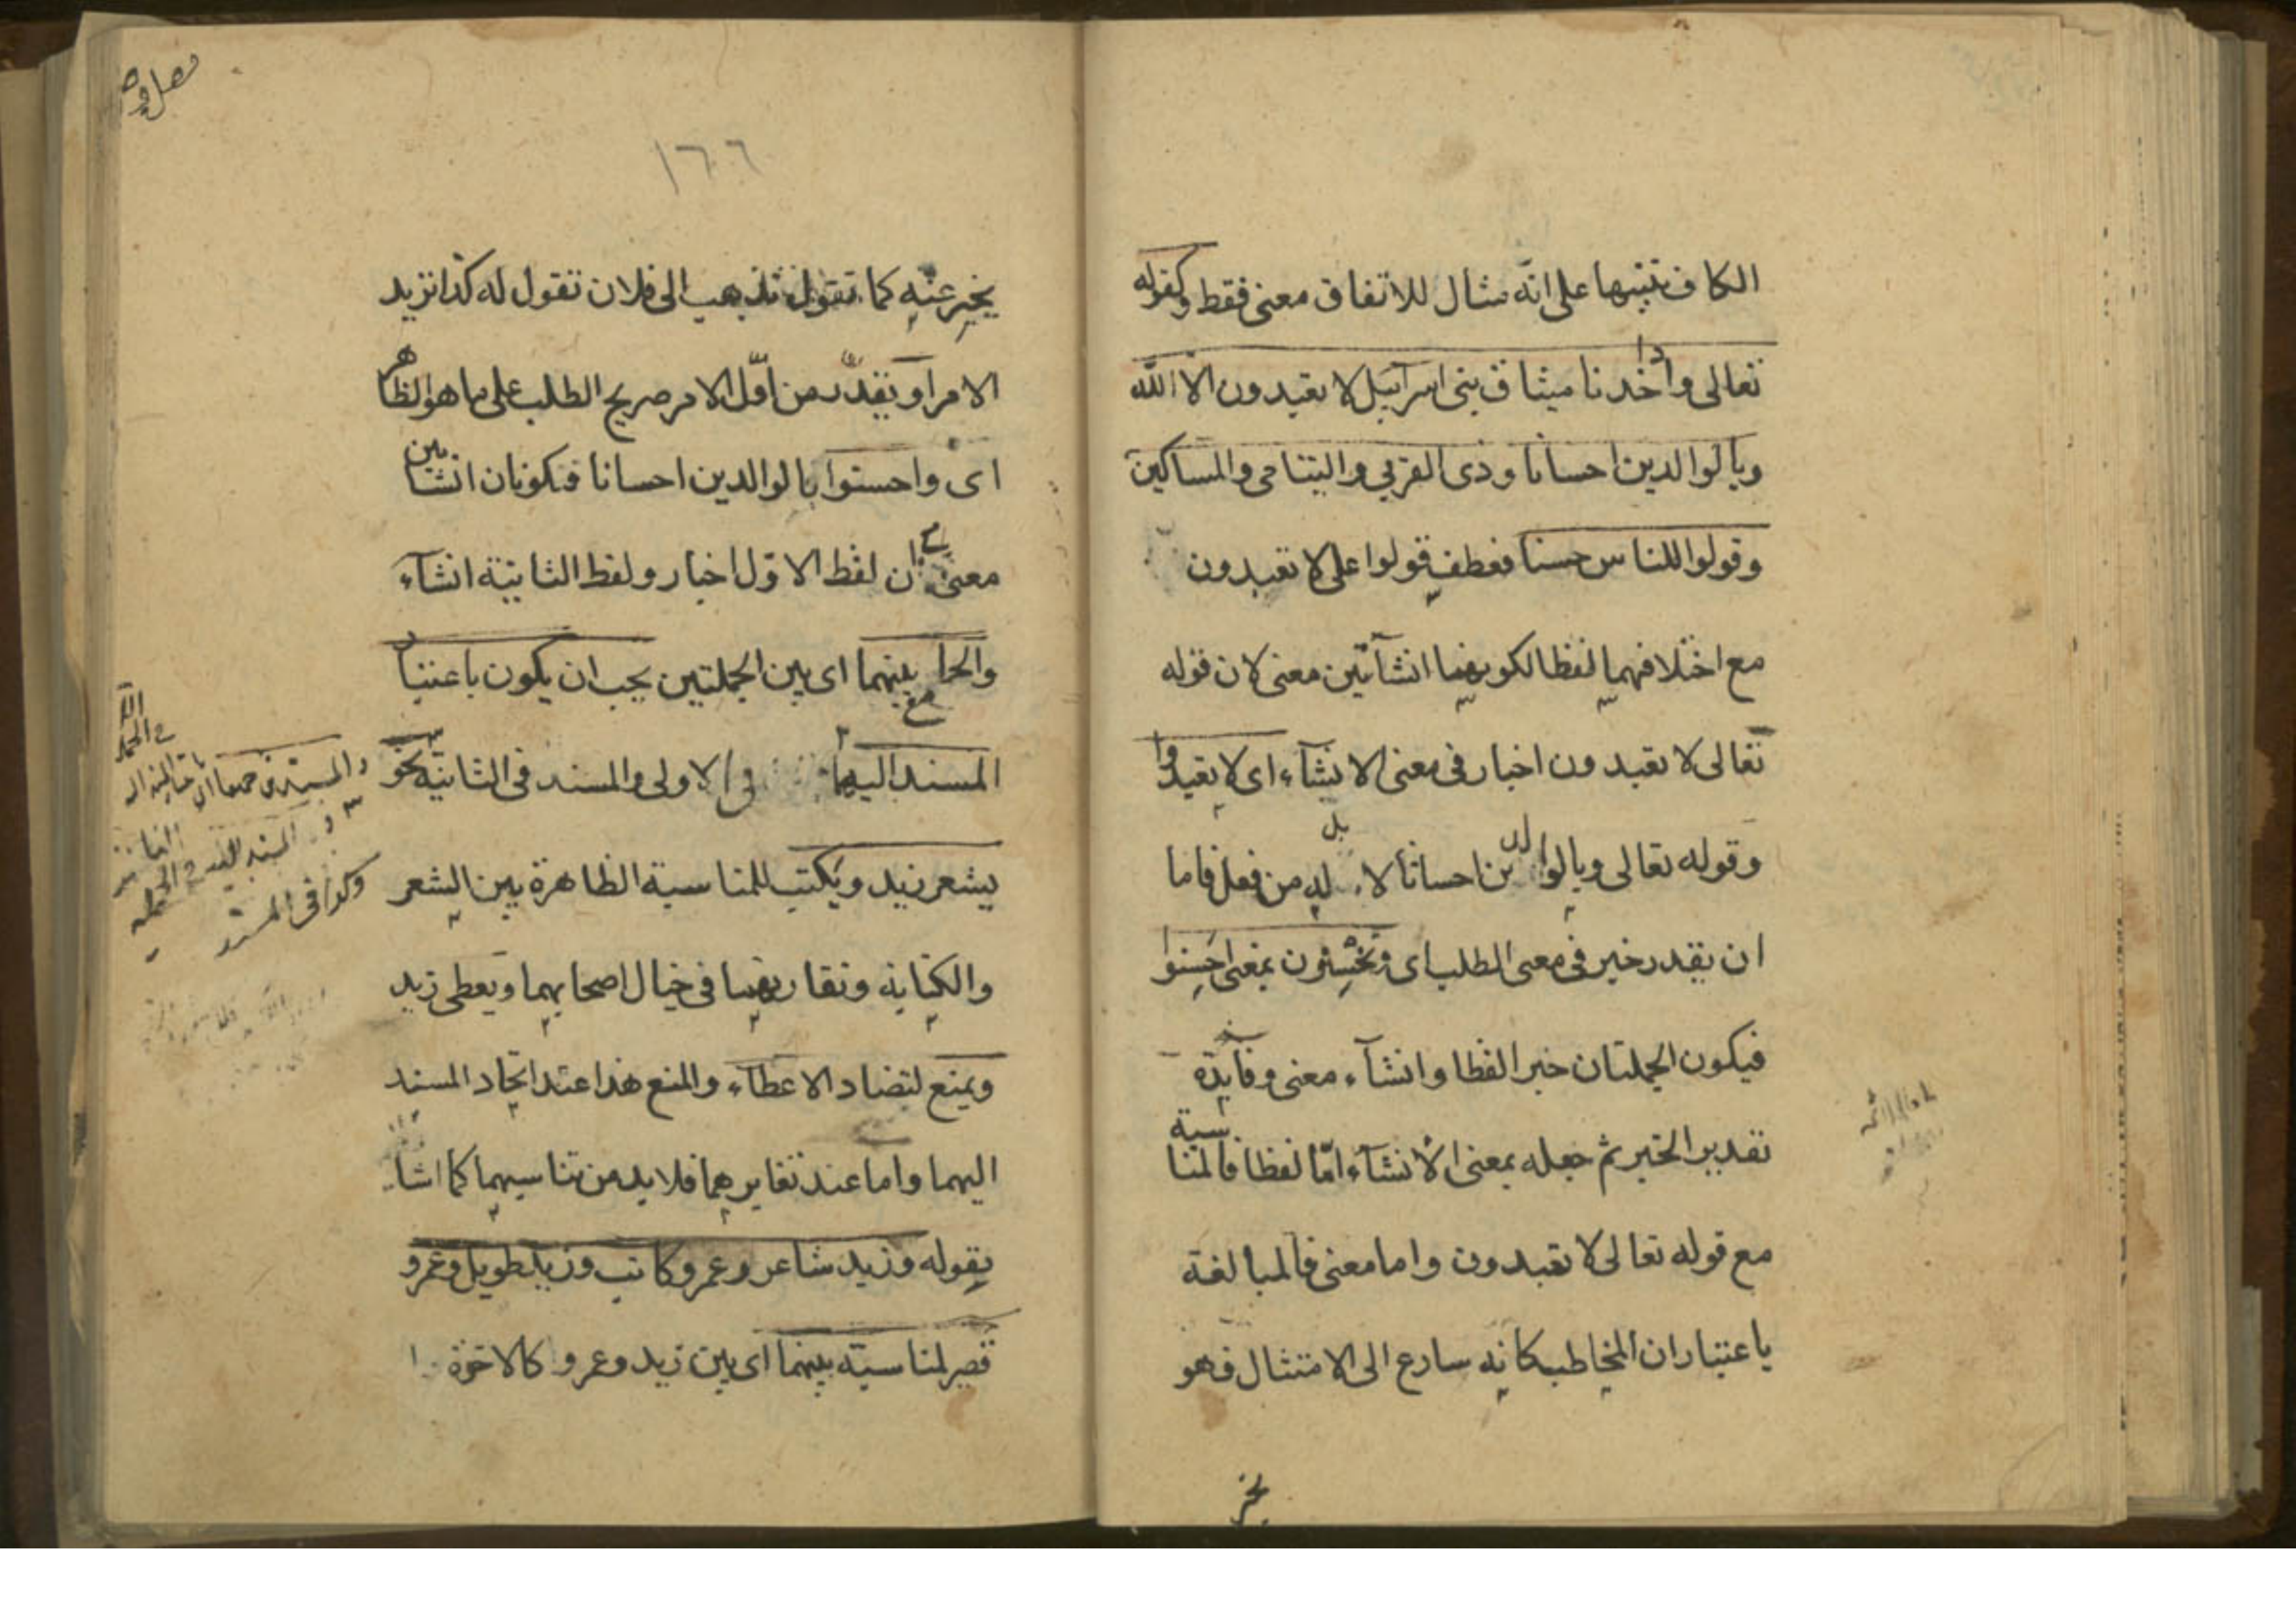 الكاف تنبيها على انّه مثال للاتفاق معنى فقط وكقوله
تعالى واذا خذنا ميثاق بنى اسرآئيل لا تعبدون الا الله
وبالوالدين احسانا وذى القربى واليتامى والمساكين
وقولوا للناس حسنا فعطف قولوا على لا تعبدون
مع اختلافهما لفظا لكونهما انشآئين معنى لان قوله
تعالى لا تعبدون اخبار فى معنى الانشآء اى لا تعبدوا
وقوله تعالى وبالوالدين احسانا لا بد له من فعل فاما
ان يقدر خبر فى معنى الطلب اى وتحسنون بمعنى احسنوا
فيكون الجملتان خبرا لفظا وانشآء معنى وفآيدة
تقدير الخبر ثم جعله بمعنى الانشآء امّا لفظا فالمناسبة
مع قوله تعالى لا تعبدون واما معنى فالمبالغة
باعتبار ان المخاطب كانه سارع الى الامتثال فهو
يخبر
١٦٦
يخبر عنه كما تقول تذهب الى فلان تقول له كذا تريد
الامر او يقدّر من اوّل الامر صريح الطلب على ما هو الظاهر
اى واحسنوا بالوالدين احسانا فتكونان انشائين
معنى مع ان لفظ الاوّل اخبار ولفظ الثانية انشآء
والجامع بينهما اى بين الجملتين يجب ان يكون باعتبار
المسند اليهما فى الاولى والمسند فى الثانية نحو
يشعر زيد ويكتب للمناسبة الظاهرة بين الشعر
والكتابة وتقارنهما فى خيال اصحابهما ويعطى زيد
ويمنع لتضاد الاعطآء والمنع هذا عند اتحاد المسند
اليهما واما عند تغايرهما فلا بد من تناسبهما كما اشار
بقوله وزيد شاعر وعمرو كاتب وزيد طويل وعمرو
قصير لمناسبة بينهما اى بين زيد وعمرو كالاخوة
والمسندين جميعا اى
المسند اليه فى الجملة
وكذا فى المسند